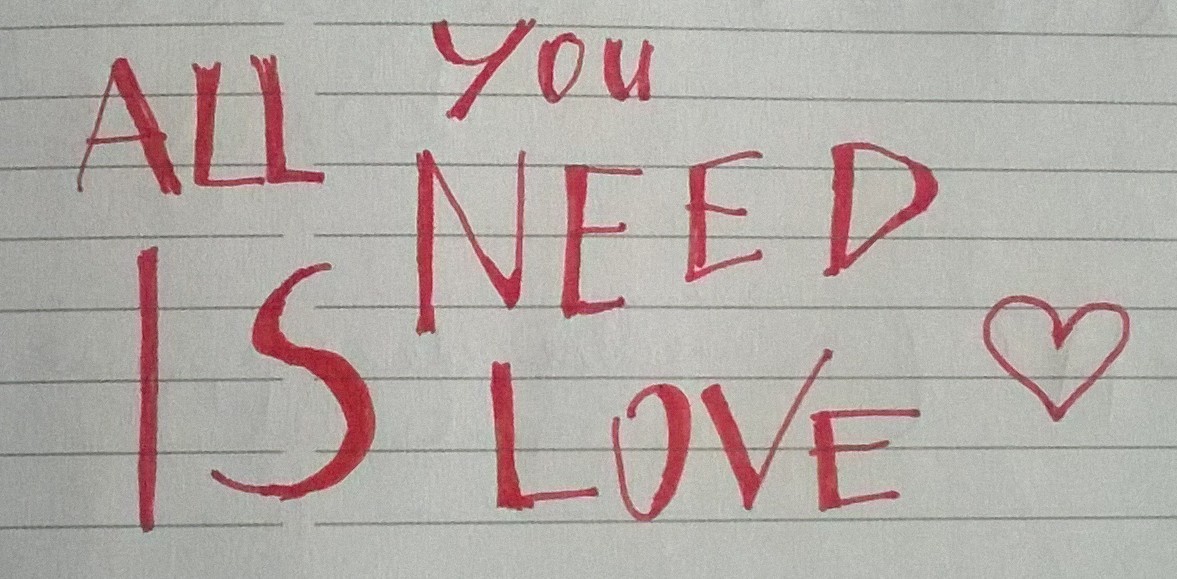 ALL YOU
NEED
IS LOVE